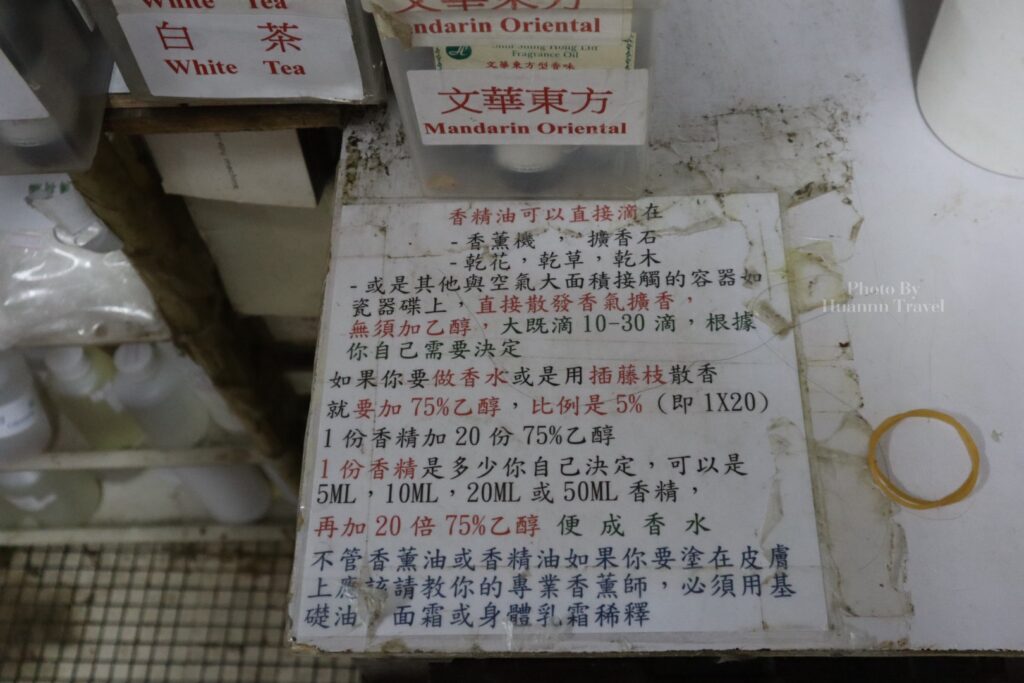 White Tea
白茶
White Tea
Mandarin Oriental
Fragrance Oil
文華東方型香味
文華東方
Mandarin Oriental
香精油可以直接滴在
- 香薰機 , 擴香石
- 乾花,乾草,乾木
- 或是其他與空氣大面積接觸的容器如
瓷器碟上,直接散發香氣擴香,
無須加乙醇,大既滴 10-30 滴,根據
你自己需要決定
如果你要做香水或是用插藤枝散香
就要加 75%乙醇,比例是 5% (即 1X20)
1 份香精加 20 份 75%乙醇
1 份香精是多少你自己決定,可以是
5ML,10ML,20ML 或 50ML 香精,
再加 20 倍 75%乙醇 便 成 香 水
不管香薰油或香精油如果你要塗在皮膚
上應該請教你的專業香薰師,必須用基
礎油,面霜或身體乳霜稀釋
Photo By
Huannn Travel